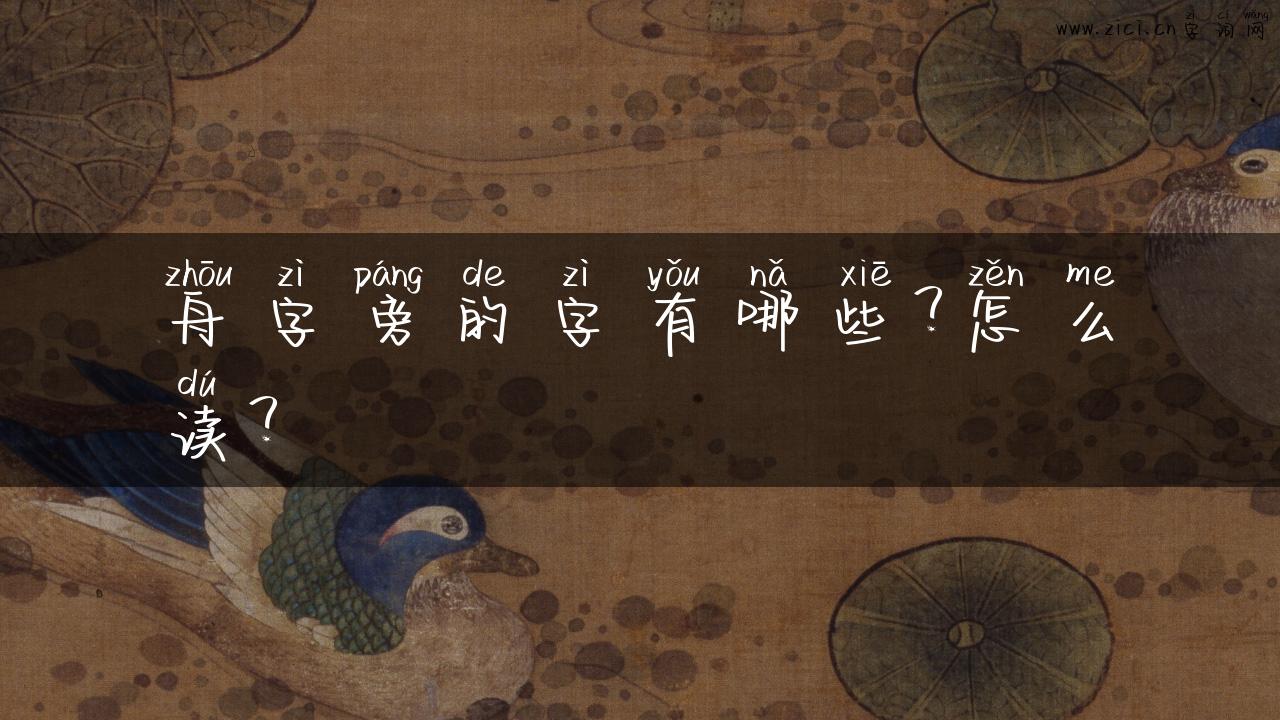 zì cí wǎng
www.zici.cn 字 词 网
zhōu zì páng de zì yǒu nǎ xiē zěn me
舟 字 旁 的 字 有 哪 些 ? 怎 么
dú
读 ?